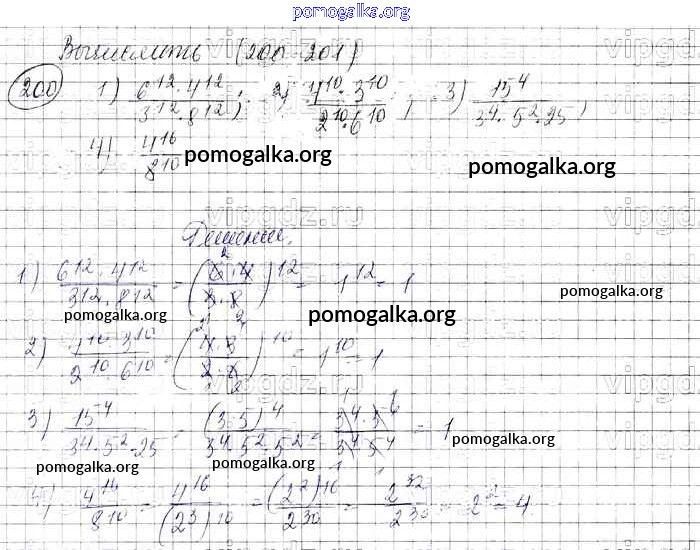 pomogalka.org
Вычислить (200-201)
200 1) 6^12·4^12 / 3^12·8^12; 2) 4^10·3^10 / 2^10·6^10; 3) 15^4 / 3^4·5^2·25;
4) 4^16 / 8^10
pomogalka.org pomogalka.org
vipgdz.ru
Решение.
1) 6^12·4^12 / 3^12·8^12 = (6·4 / 3·8)^12 = 1^12 = 1
pomogalka.org pomogalka.org pomogalka.org
2) 4^10·3^10 / 2^10·6^10 = (4·3 / 2·6)^10 = 1^10 = 1
vipgdz.ru
3) 15^4 / 3^4·5^2·25 = (3·5)^4 / 3^4·5^2·5^2 = / 3^4·5^4 = 1
pomogalka.org pomogalka.org pomogalka.org
4) / 8^10 = 4^16 / (2^3)^10 = (2^2)^16 / 2^30 = 2^32 / 2^30 = 2^2 = 4.
vipgdz.ru